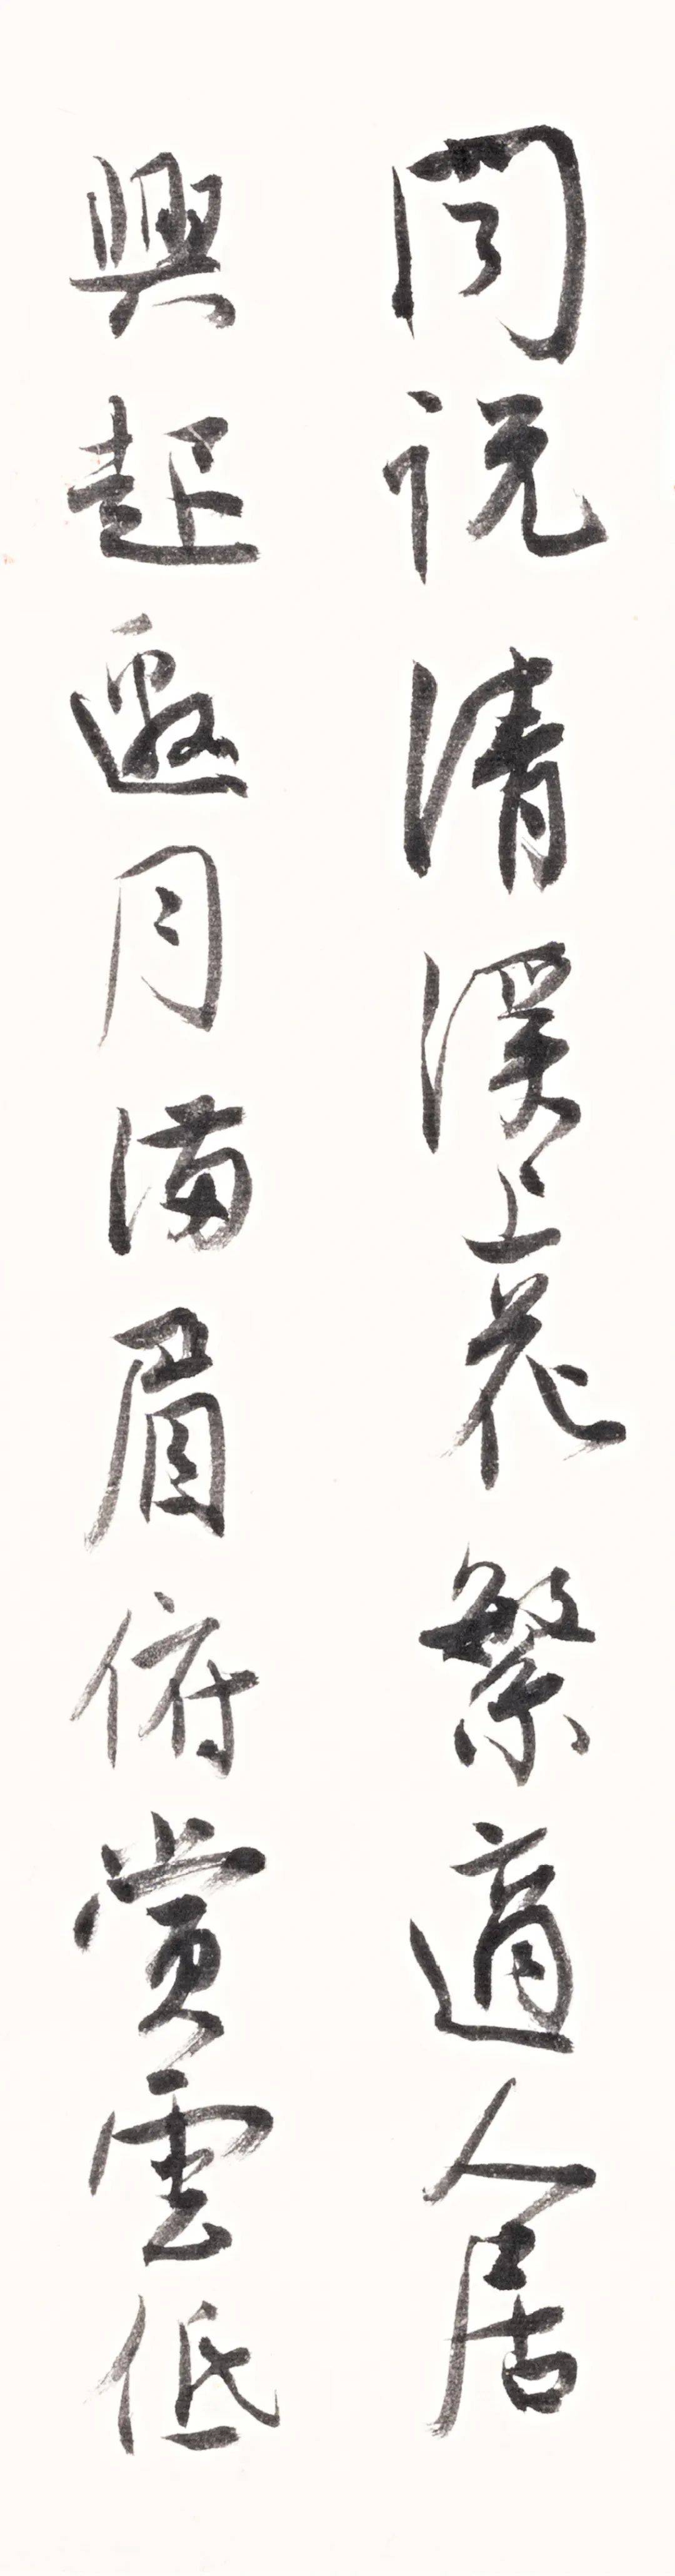 問説清溪上花繁適人居
興起邀月滿眉俯賞雲低